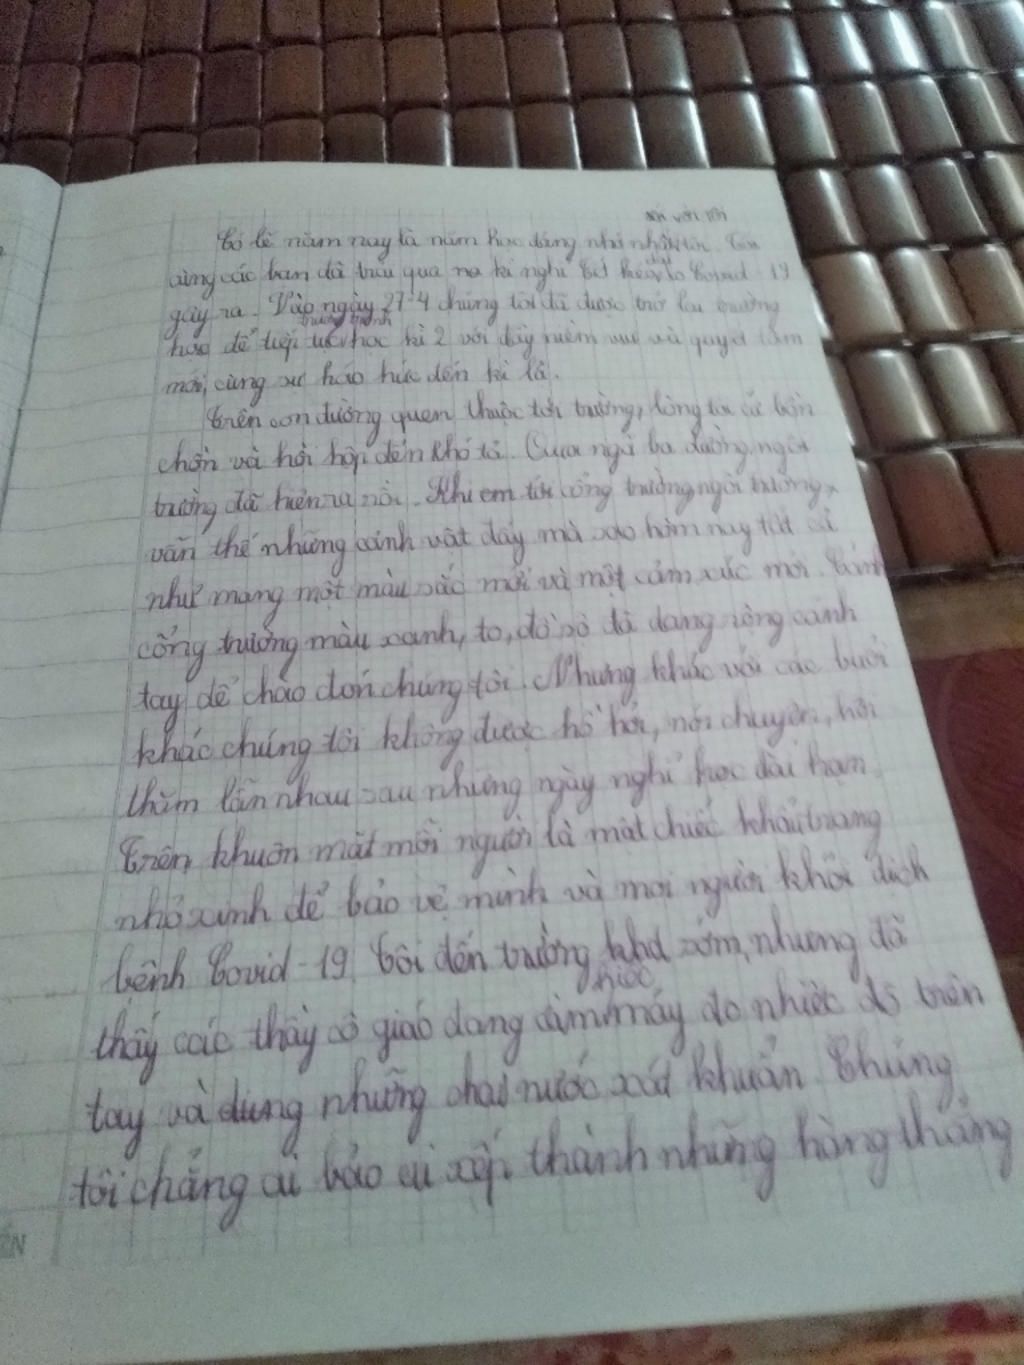 đối với tôi
Có lẽ năm nay là năm học đáng nhớ nhất Tôi
cùng các bạn đã trải qua kì nghỉ Tết kéo dài do Covid-19
gây ra. Vào ngày 27-4 chúng tôi đã được trở lại trường
chương trình
học để tiếp tục học kì 2 với đầy niềm vui và quyết tâm
mới, cùng sự háo hức đến kì lạ.
Trên con đường quen thuộc tới trường, lòng tôi cứ bồn
chồn và hồi hộp đến khó tả. Qua ngã ba đường, ngôi
trường đã hiện ra rồi. Khi em tới cổng trường, ngôi trường,
vẫn thế những cảnh vật đấy mà sao hôm nay tất cả
như mang một màu sắc mới và một cảm xúc mới. Cánh
cổng trường màu xanh, to, đồ sộ đã dang rộng cánh
tay để chào đón chúng tôi. Nhưng khác với các buổi
khác chúng tôi không được hồ hởi, nói chuyện, hỏi
thăm lẫn nhau sau những ngày nghỉ học dài hạn
Trên khuôn mặt mỗi người là một chiếc khẩu trang
nhỏ xinh để bảo vệ mình và mọi người khỏi dịch
bệnh Covid-19. Tôi đến trường khá sớm, nhưng đã
thấy các thầy cô giáo đang cầm chiếc máy đo nhiệt độ trên
tay và dùng những chai nước xát khuẩn. Chúng
tôi chẳng ai bảo ai xếp thành những hàng thẳng